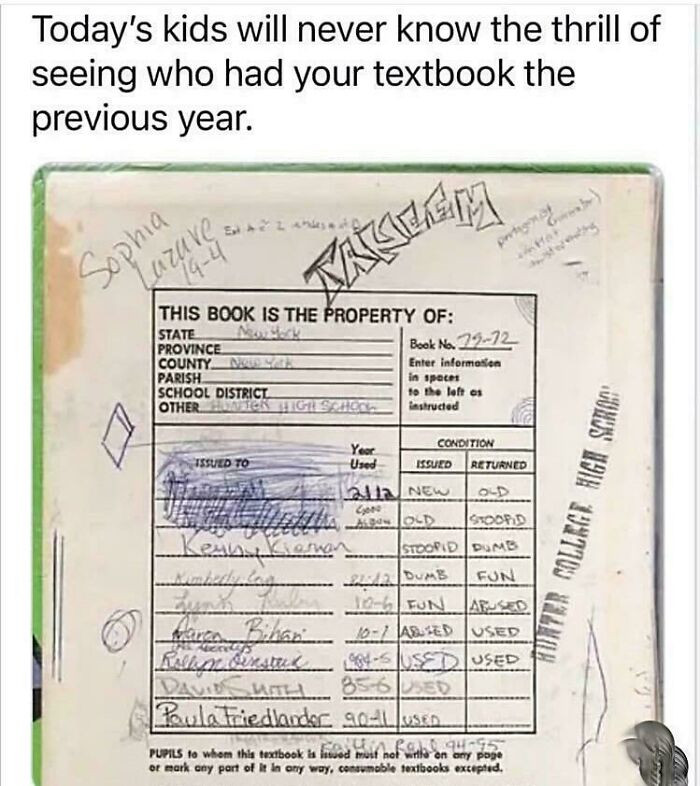 Today's kids will never know the thrill of
seeing who had your textbook the
previous year.
Sophia
Lazare
19-4
TAKSEEM
THIS BOOK IS THE PROPERTY OF:
STATE New York
PROVINCE
COUNTY New York
PARISH
SCHOOL DISTRICT
OTHER HUNTER HIGH SCHOOL
Book No. 79-72
Enter information
in spaces
to the left as
instructed
ISSUED TO
Year
Used
CONDITION
ISSUED RETURNED
NEW OLD
OLD STOOPID
Kenny Kiernan STOOPID DUMB
Kimberly DUMB FUN
Lynn 10-6 FUN ABUSED
Aaron Bihari 10-7 ABUSED USED
USED USED
DAVID SMITH 85-6 USED
Paula Friedlander 90-91 USED
94-95
PUPILS to whom this textbook is issued must not write on any page
or mark any part of it in any way, consumable textbooks excepted.
HUNTER COLLEGE HIGH SCHOOL